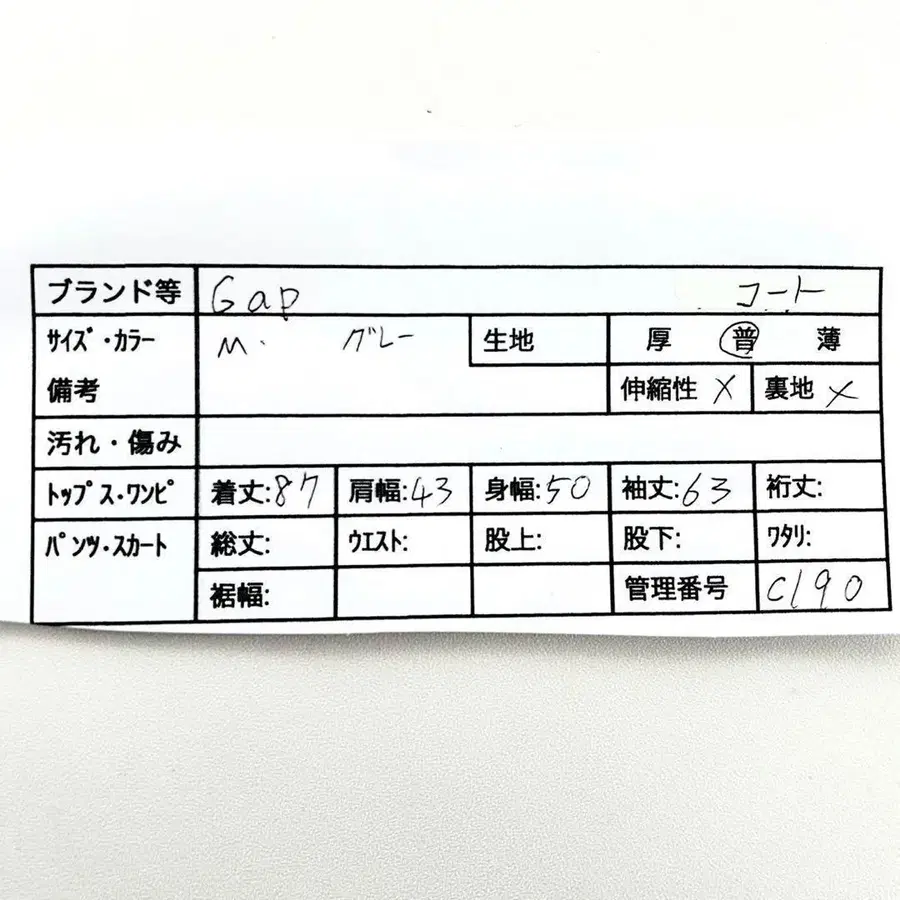 ブランド等 Gap コート
サイズ・カラー M. グレー 生地 厚 普 薄
備考 伸縮性 X 裏地 X
汚れ・傷み
トップス・ワンピ 着丈:87 肩幅:43 身幅:50 袖丈:63 裄丈:
パンツ・スカート 総丈: ウエスト: 股上: 股下: ワタリ:
裾幅: 管理番号 C190